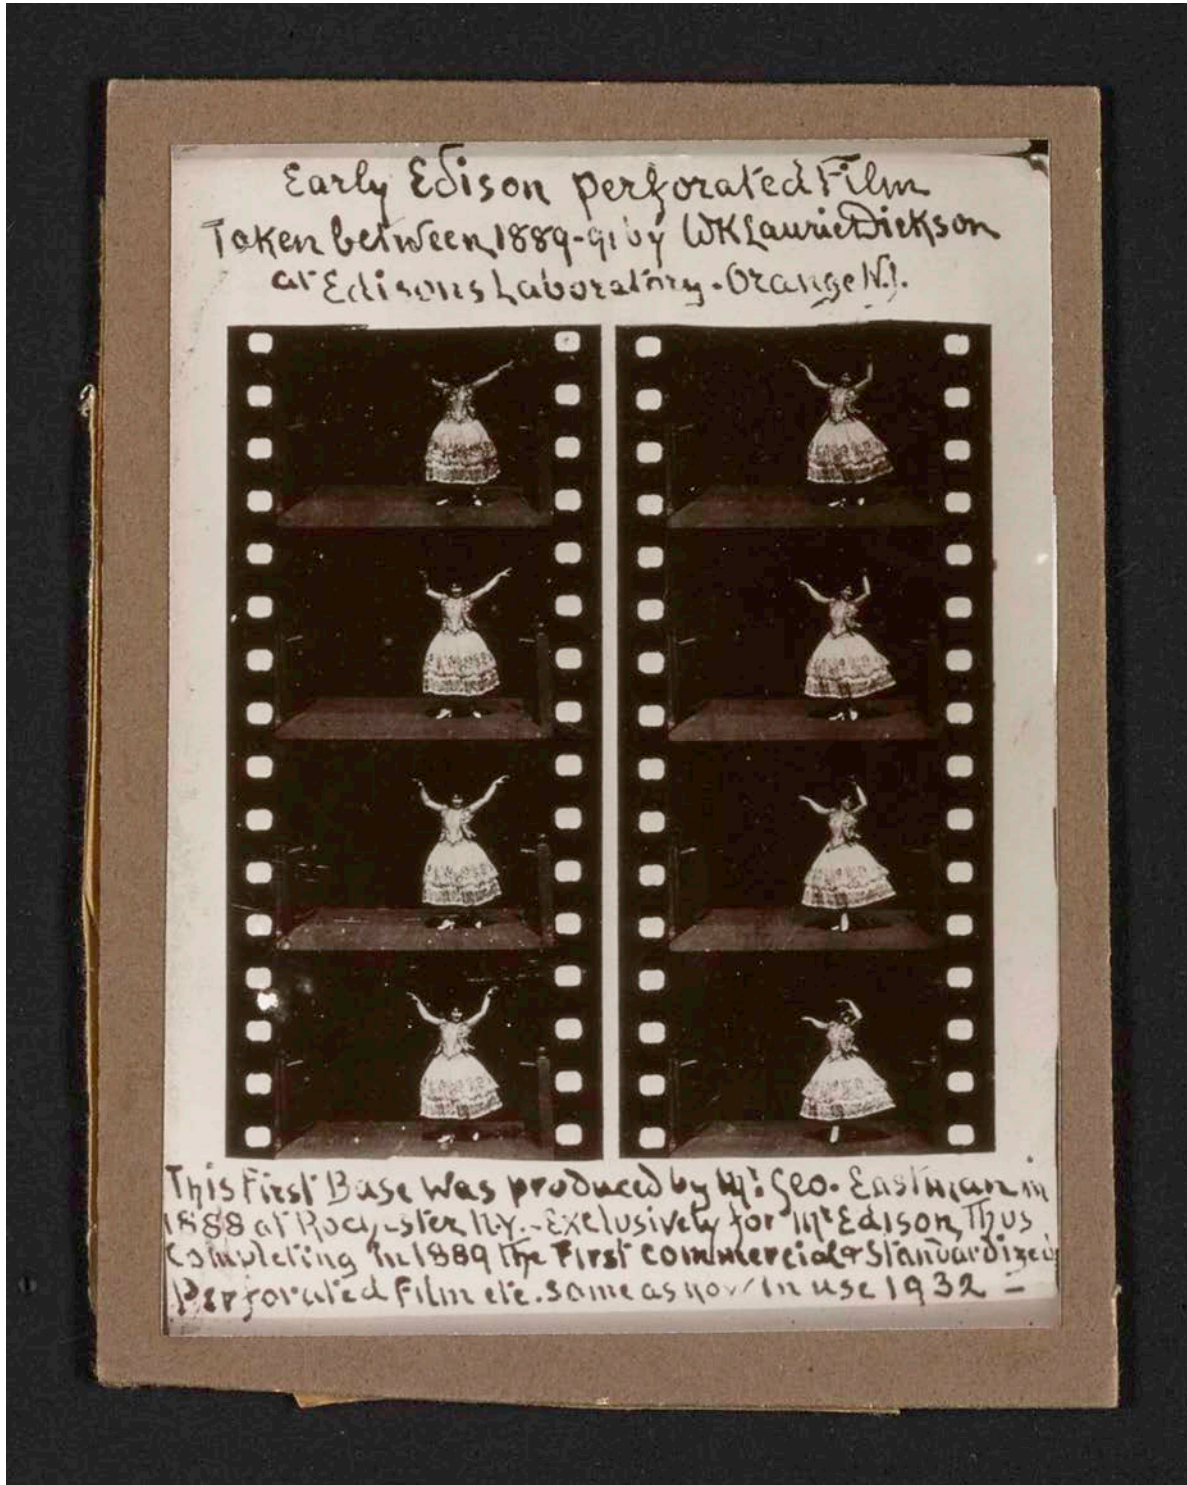 Early Edison perforated Film
Taken between 1889-91 by WKLaurieDickson
at Edisons Laboratory - Orange N.J.
This First Base was produced by Mr. Geo. Eastman in
1888 at Rochester N.Y. - Exclusively for Mr Edison, Thus
Completing in 1889 The First commercial & Standardized
Perforated Film etc. same as now in use 1932 =